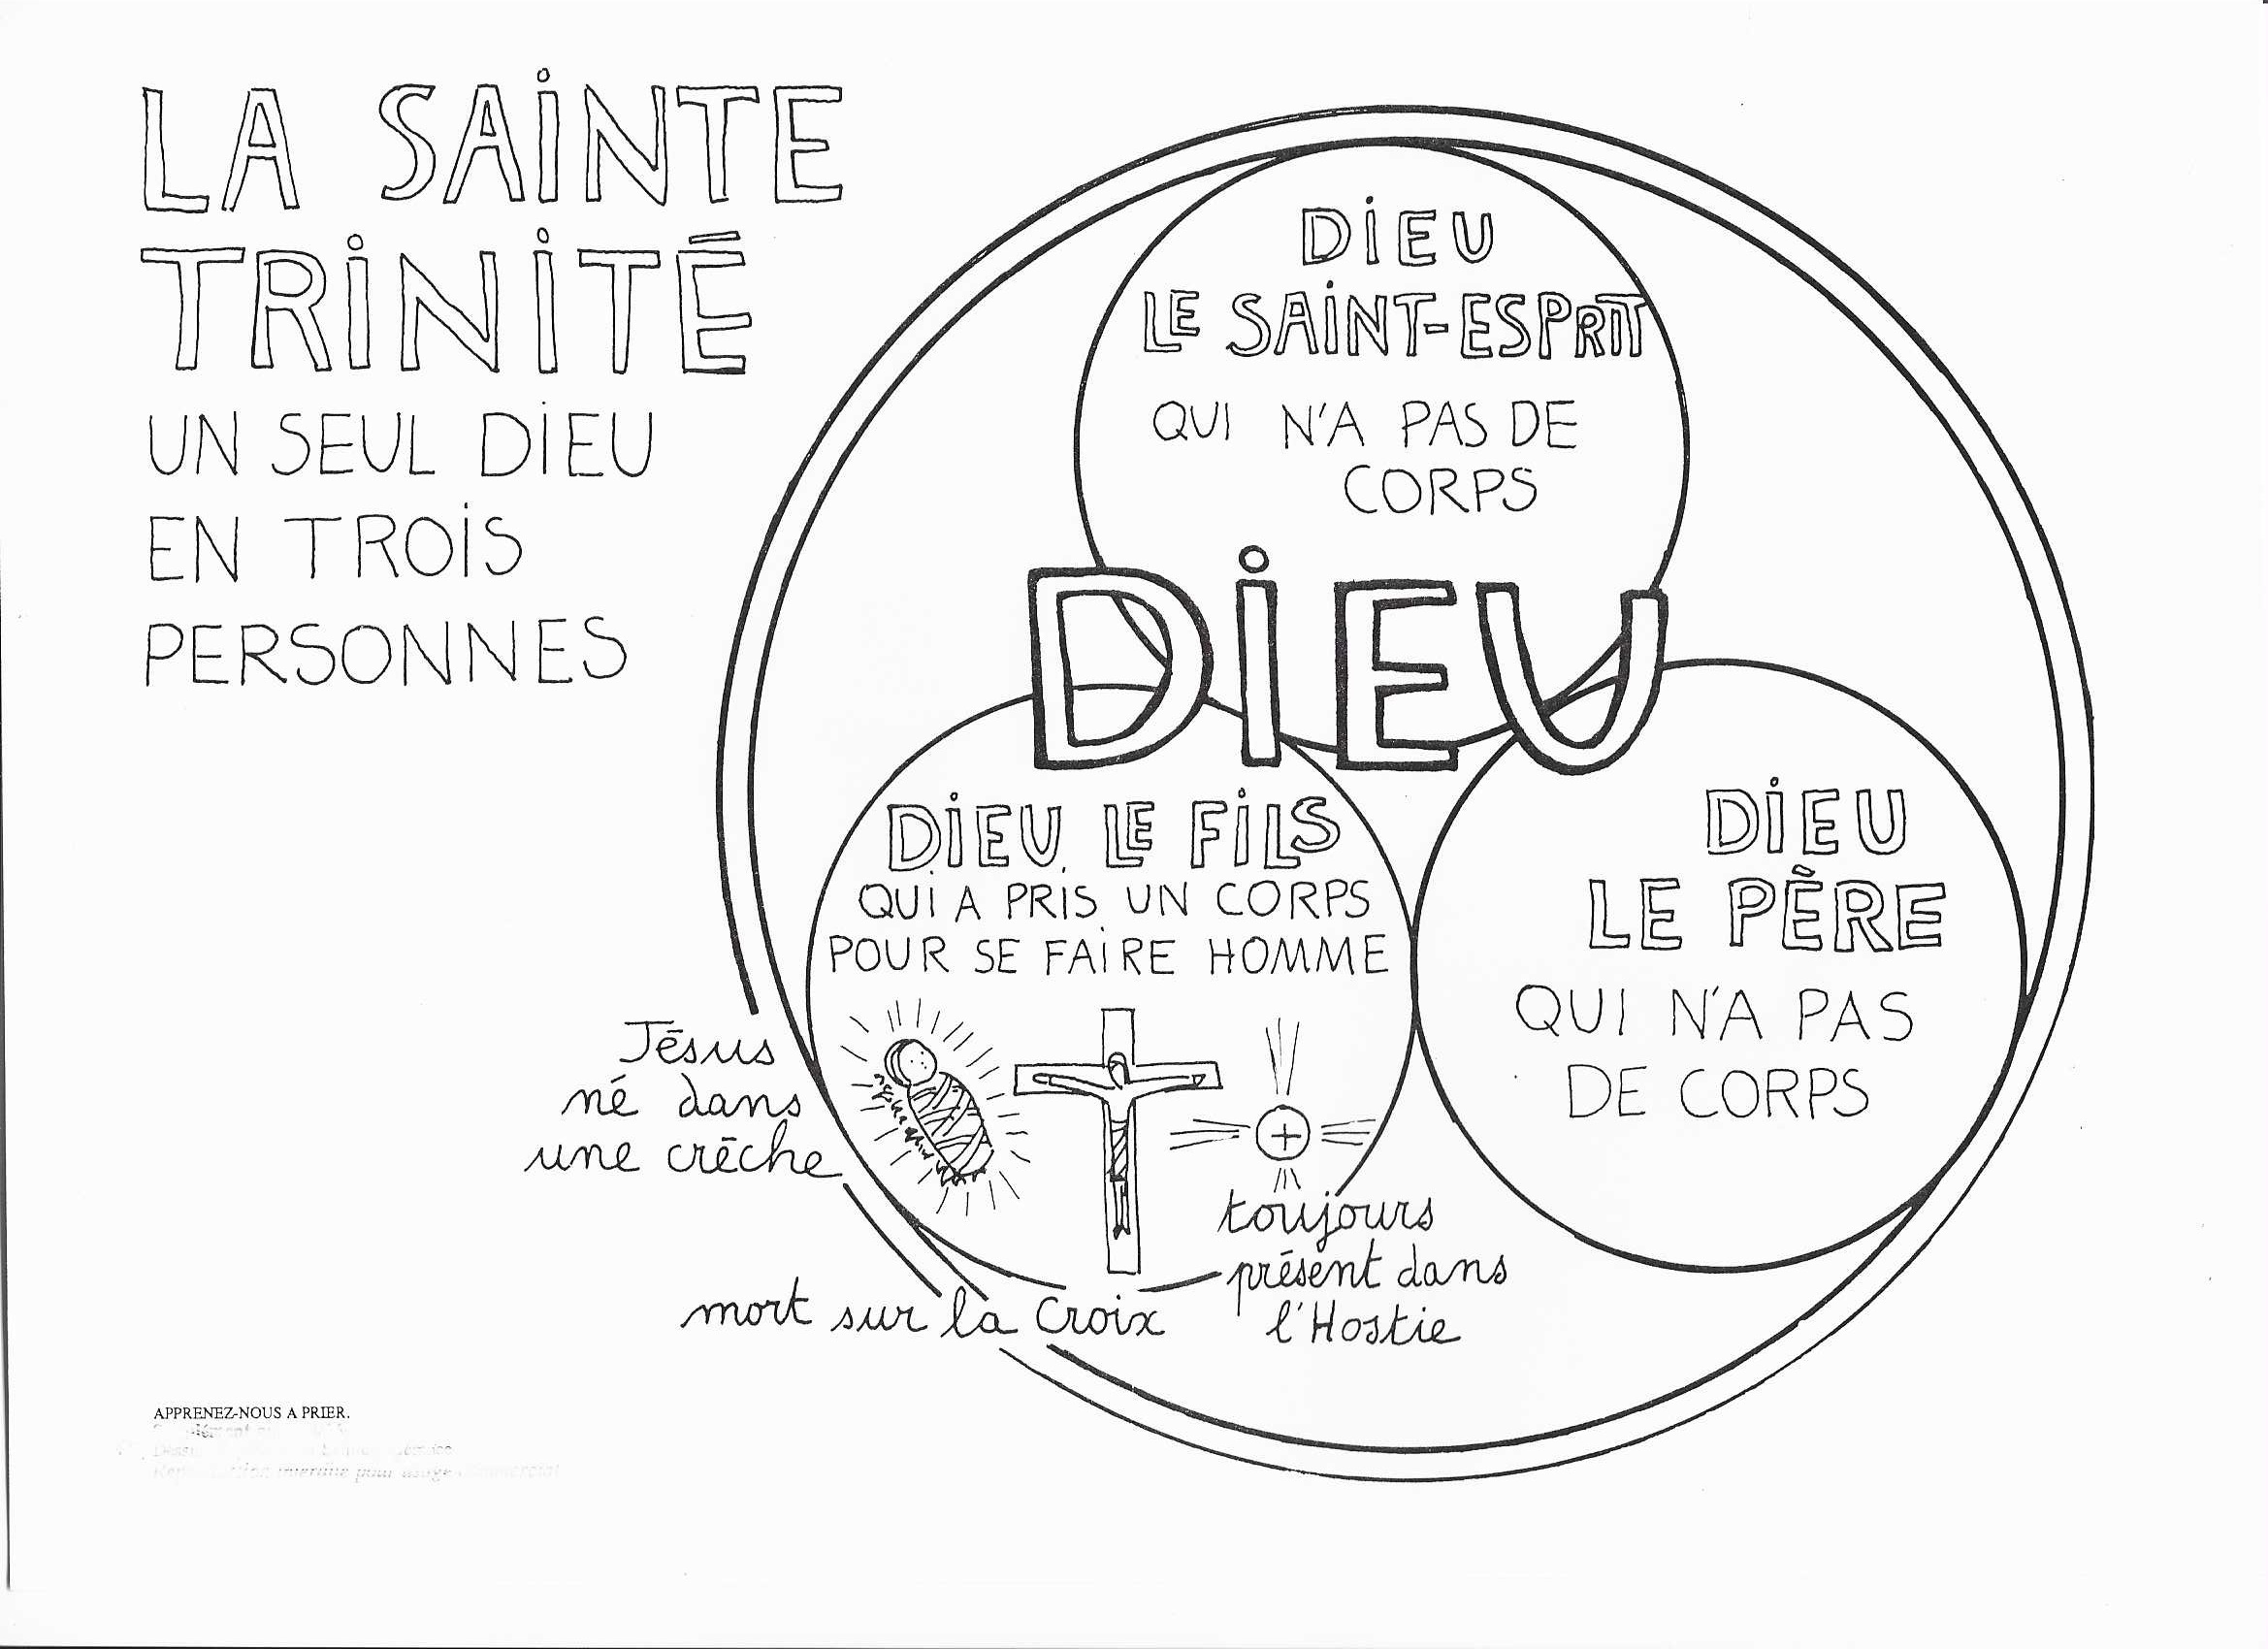 LA SAINTE
TRINITÉ
UN SEUL DIEU
EN TROIS
PERSONNES
DIEU
LE SAINT-ESPRIT
QUI N'A PAS DE
CORPS
DIEU
DIEU LE FILS
QUI A PRIS UN CORPS
POUR SE FAIRE HOMME
DIEU
LE PÈRE
QUI N'A PAS
DE CORPS
Jésus
né dans
une crèche
mort sur la Croix
toujours
présent dans
l'Hostie
APPRENEZ-NOUS A PRIER.
interdite pour usage